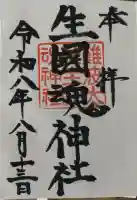 奉拝
生國魂神社
令和八年八月十三日